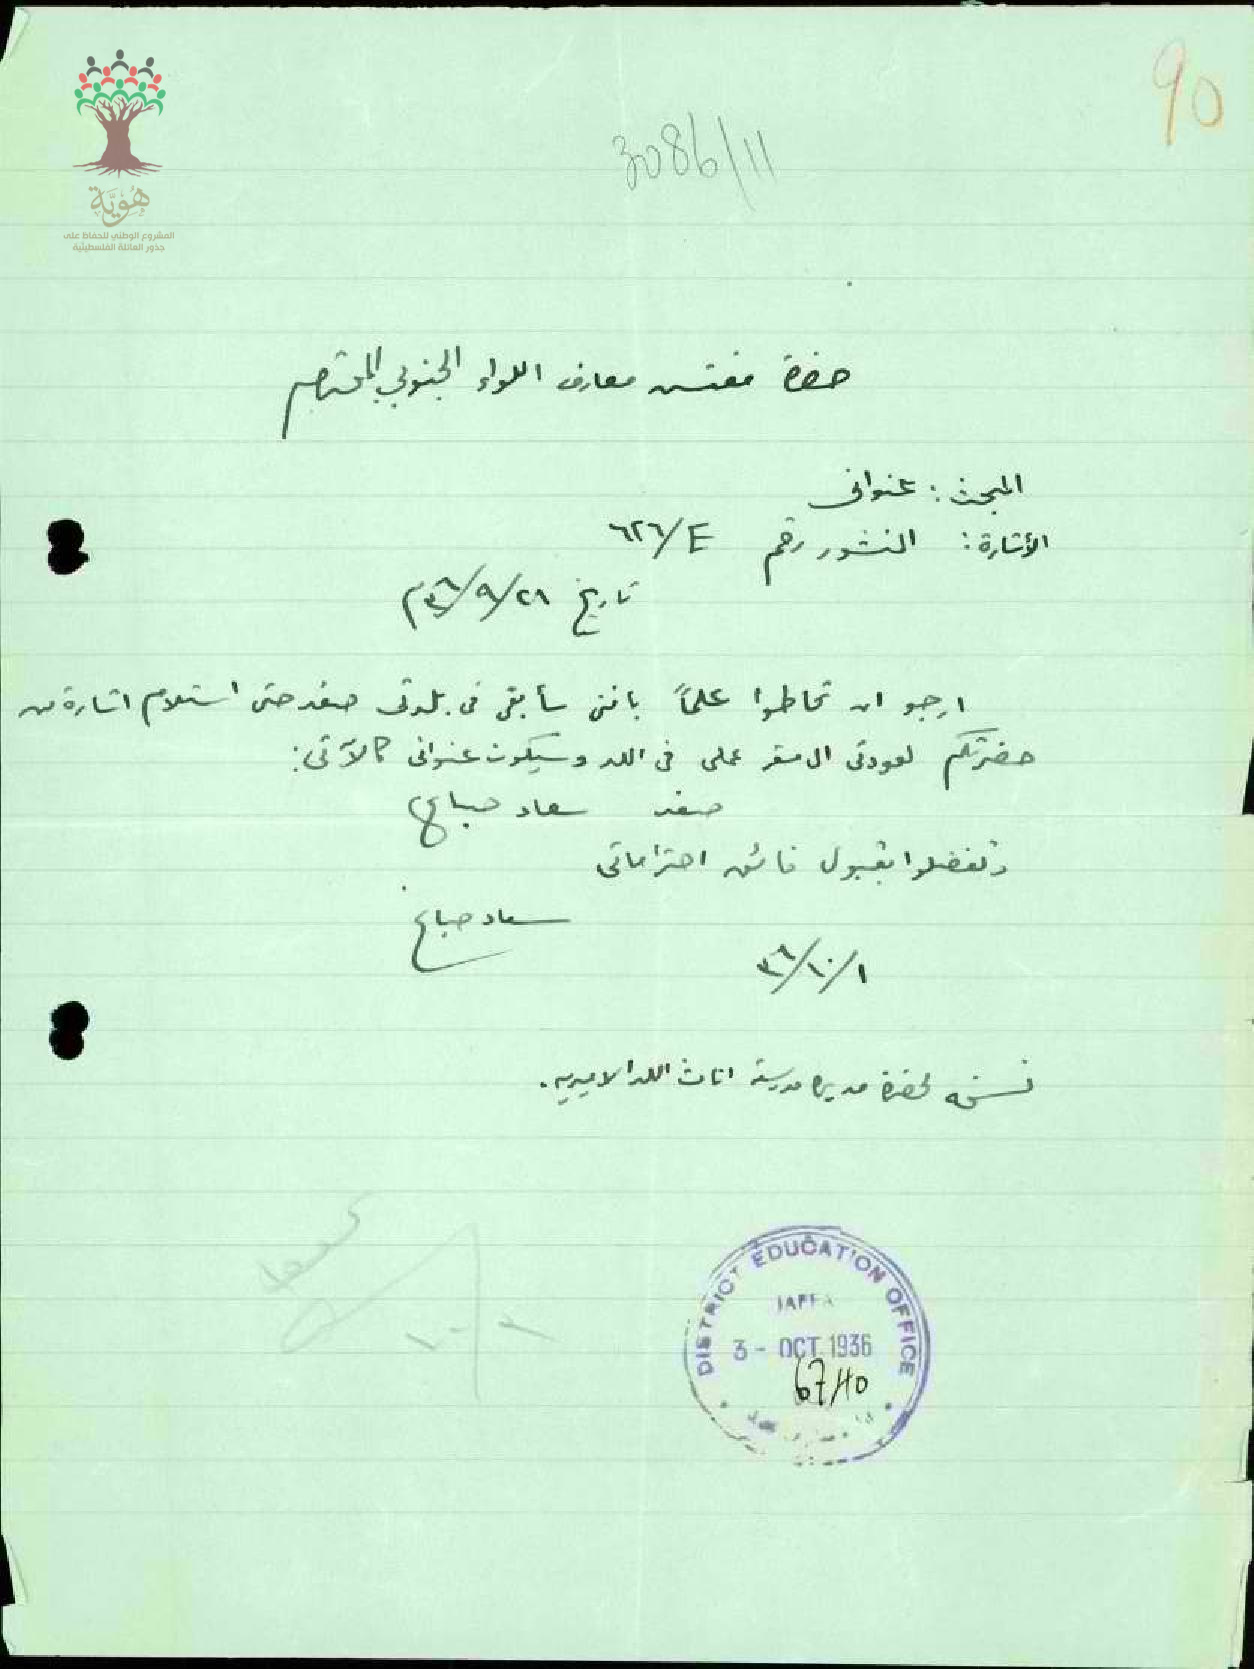 90
3086/11
هوية
المشروع الوطني للحفاظ على
جذور العائلة الفلسطينية
حضرة مفتش معارف اللواء الجنوبي المحترم
المبحث : عنواني
الأشارة : المنشور رقم ٦٢٦/E
تاريخ ٢٨/٩/٣٦م
ارجو ان تحاطوا علماً بانني سأبقى في بلدتي صفد حتى استلام اشارة من
حضرتكم لعودتي الى مقر عملي في اللد وسيكون عنواني كالآتي :
صفد سعاد صباغ
وتفضلوا بقبول فائق احتراماتي
سعاد صباغ
١/١٠/٣٦
نسخه لحضرة مديرة مدرسة اناث اللد الاميريه .
DISTRICT EDUCATION OFFICE
JAFFA
3 - OCT 1936